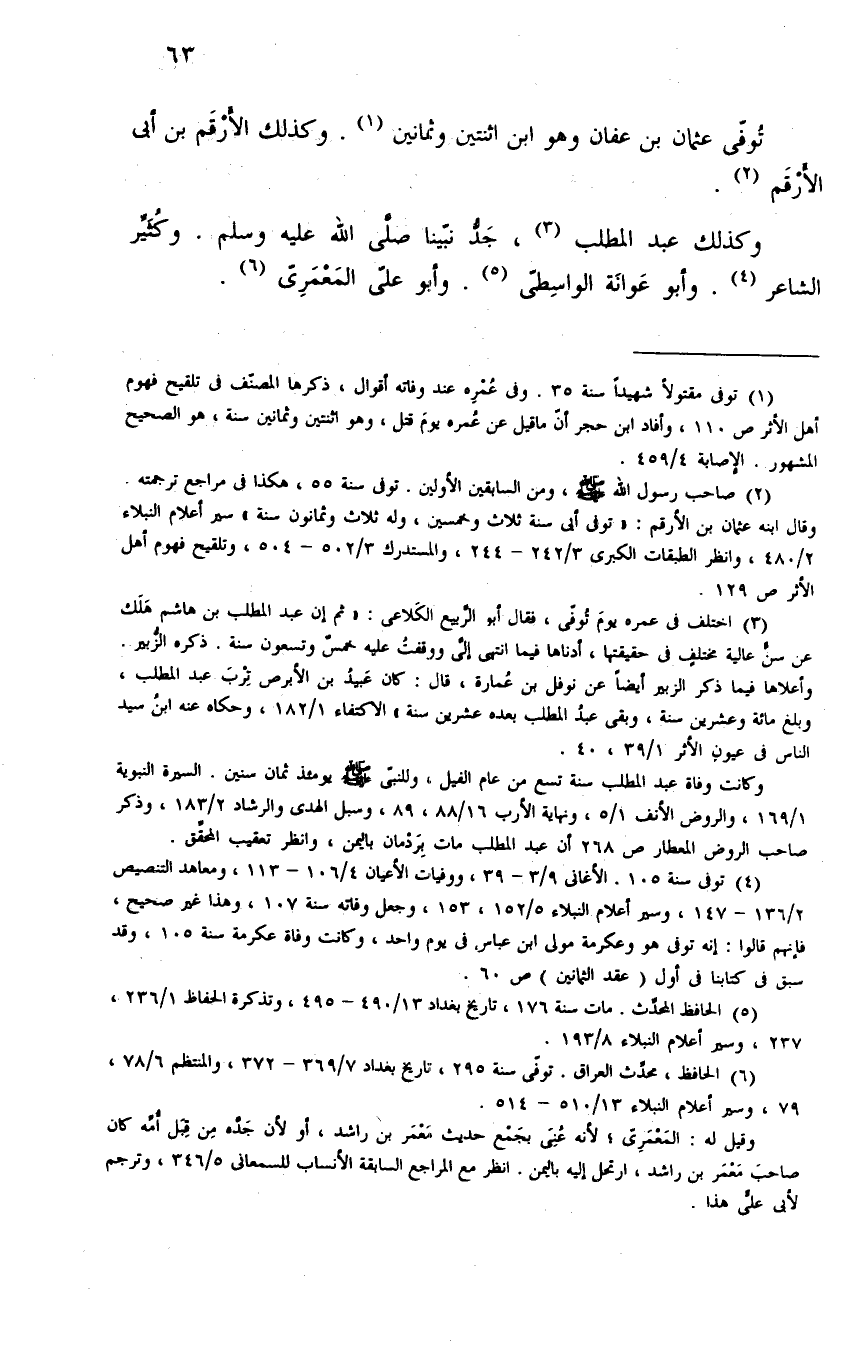 ٦٣
تُوفّى عثمان بن عفان وهو ابن اثنتين وثمانين (١) . وكذلك الأَرْقَم بن أبى
الأَرْقَم (٢) .
وكذلك عبد المطلب (٣) ، جَدُّ نبّينا صلَّى الله عليه وسلم . وكُثَيِّر
الشاعر (٤) . وأبو عَوانَة الواسِطىّ (٥) . وأبو علىّ المَعْمَرِىّ (٦) .
(١) توفى مقتولاً شهيداً سنة ٣٥ . وفى عُمْرِه عند وفاته أقوال ، ذكرها المصنّف فى تلقيح فهوم
أهل الأثر ص ١١٠ ، وأفاد ابن حجر أنّ ماقيل عن عُمره يومَ قتل ، وهو اثنتين وثمانين سنة ، هو الصحيح
المشهور . الإصابة ٤٥٩/٤ .
(٢) صاحب رسول الله ﷺ ، ومن السابقين الأولين . توفى سنة ٥٥ ، هكذا فى مراجع ترجمته .
وقال ابنه عثمان بن الأرقم : « توفى أبى سنة ثلاث وخمسين ، وله ثلاث وثمانون سنة » سير أعلام النبلاء
٤٨٠/٢ ، وانظر الطبقات الكبرى ٢٤٢/٣ – ٢٤٤ ، والمستدرك ٥٠٢/٣ – ٥٠٤ ، وتلقيح فهوم أهل
الأثر ص ١٢٩ .
(٣) اختلف فى عمره يومَ تُوفّى ، فقال أبو الرَّبيع الكَلاعى : « ثم إن عبد المطلب بن هاشم هَلَك
عن سنٍّ عالية مختلفٍ فى حقيقتها ، أدناها فيما انتهى إلىَّ ووقفتُ عليه خمسٌ وتسعون سنة . ذكره الزُّبير .
وأعلاها فيما ذكر الزبير أيضاً عن نوفل بن عُمارة ، قال : كان عَبيدُ بن الأبرص تِرْبَ عبد المطلب ،
وبلغ مائة وعشرين سنة ، وبقى عبدُ المطلب بعده عشرين سنة » الاكتفاء ١٨٢/١ ، وحكاه عنه ابنُ سيد
الناس فى عيون الأثر ٣٩/١ ، ٤٠ .
وكانت وفاة عبد المطلب سنة تسع من عام الفيل ، وللنبىّ ﷺ يومئذ ثمان سنين . السيرة النبوية
١٦٩/١ ، والروض الأنف ٥/١ ، ونهاية الأرب ٨٨/١٦ ، ٨٩ ، وسبل الهدى والرشاد ١٨٣/٢ ، وذكر
صاحب الروض المعطار ص ٢٦٨ أن عبد المطلب مات بِرَدْمان باليمن ، وانظر تعقيب المحقِّق .
(٤) توفى سنة ١٠٥ . الأغانى ٣/٩ – ٣٩ ، ووفيات الأعيان ١٠٦/٤ – ١١٣ ، ومعاهد التنصيص
١٣٦/٢ – ١٤٧ ، وسير أعلام النبلاء ١٥٢/٥ ، ١٥٣ ، وجعل وفاته سنة ١٠٧ ، وهذا غير صحيح ،
فإنهم قالوا : إنه توفى هو وعكرمة مولى ابن عباس فى يوم واحد ، وكانت وفاة عكرمة سنة ١٠٥ ، وقد
سبق فى كتابنا فى أول ( عقد الثمانين ) ص ٦٠ .
(٥) الحافظ المحدّث . مات سنة ١٧٦ ، تاريخ بغداد ٤٩٠/١٣ – ٤٩٥ ، وتذكرة الحفاظ ٢٣٦/١ ،
٢٣٧ ، وسير أعلام النبلاء ١٩٣/٨ .
(٦) الحافظ ، محدّث العراق . توفّى سنة ٢٩٥ ، تاريخ بغداد ٣٦٩/٧ – ٣٧٢ ، والمنتظم ٧٨/٦ ،
٧٩ ، وسير أعلام النبلاء ٥١٠/١٣ – ٥١٤ .
وقيل له : المَعْمَرِىّ ؛ لأنه عُنِىَ بجَمْع حديث مَعْمَر بن راشد ، أو لأن جَدّه مِن قِبَل أمّه كان
صاحبَ مَعْمَر بن راشد ، ارتحل إليه باليمن . انظر مع المراجع السابقة الأنساب للسمعانى ٣٤٦/٥ ، وترجم
لأبى علىٍّ هذا .